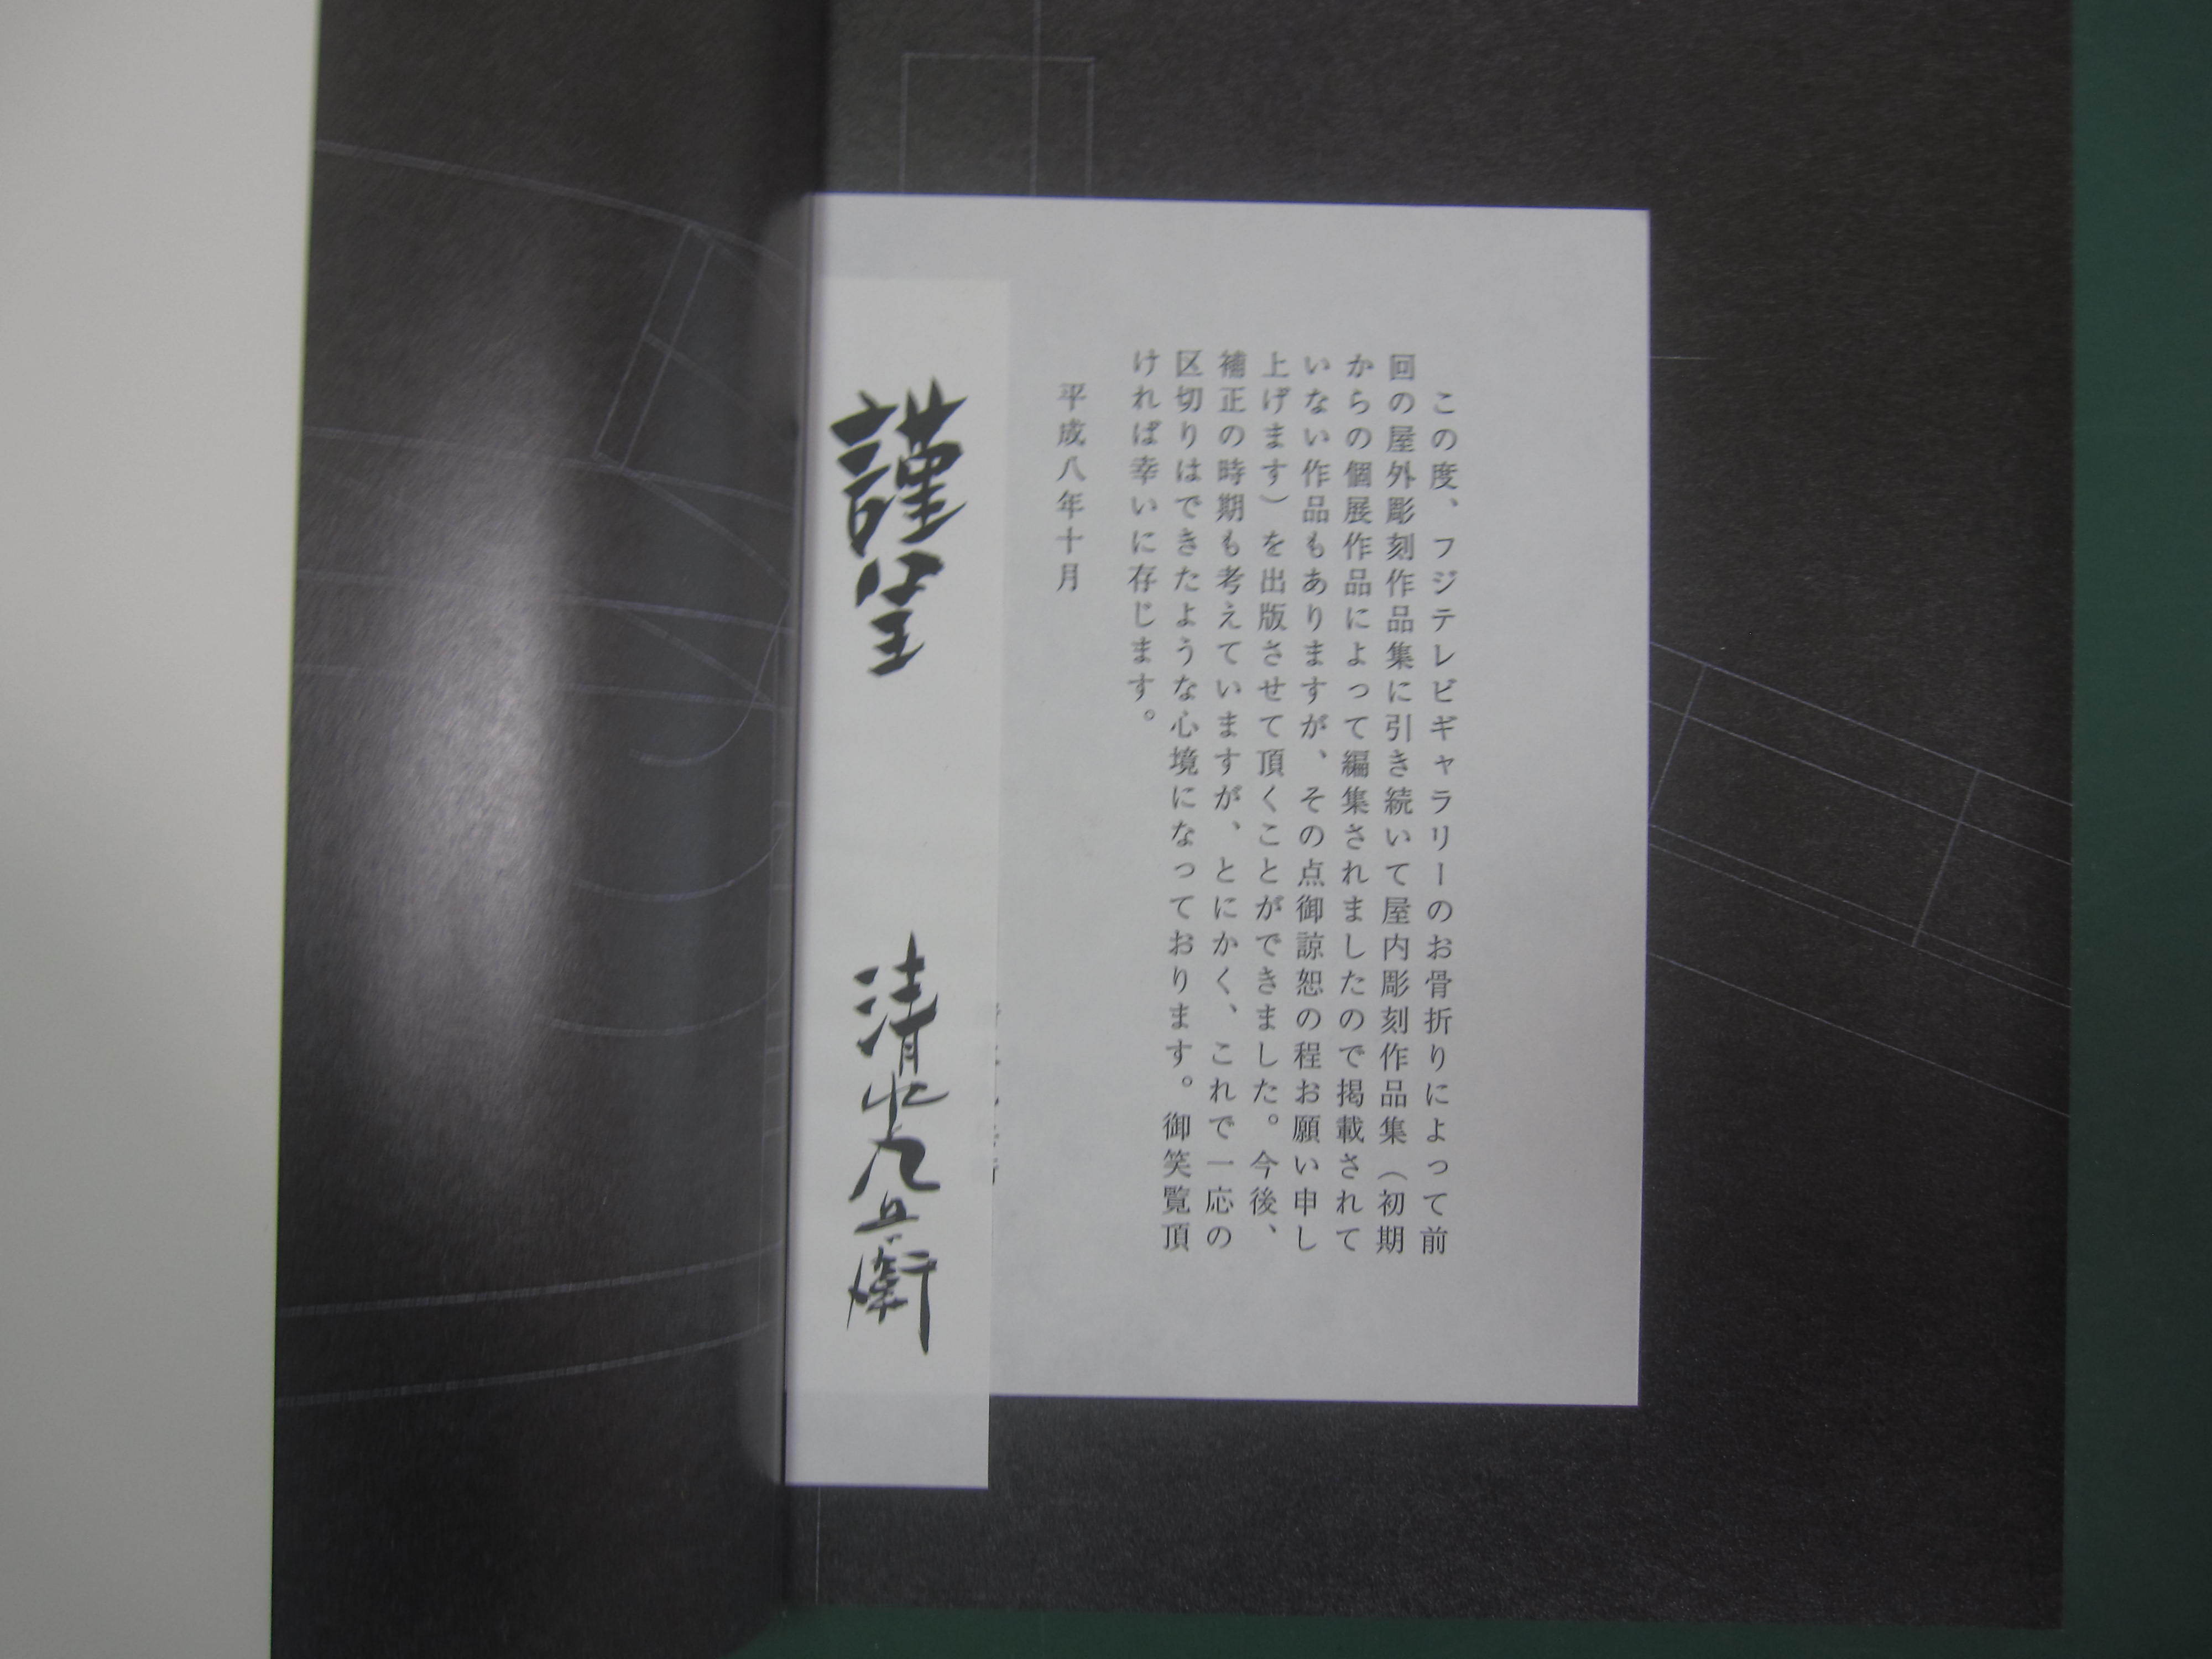 この度、フジテレビギャラリーのお骨折りによって前
回の屋外彫刻作品集に引き続いて屋内彫刻作品集（初期
からの個展作品によって編集されましたので掲載されて
いない作品もありますが、その点御諒恕の程お願い申し
上げます）を出版させて頂くことができました。今後、
補正の時期も考えていますが、とにかく、これで一応の
区切りはできたような心境になっております。御笑覧頂
ければ幸いに存じます。
平成八年十月
謹呈
清水九兵衛